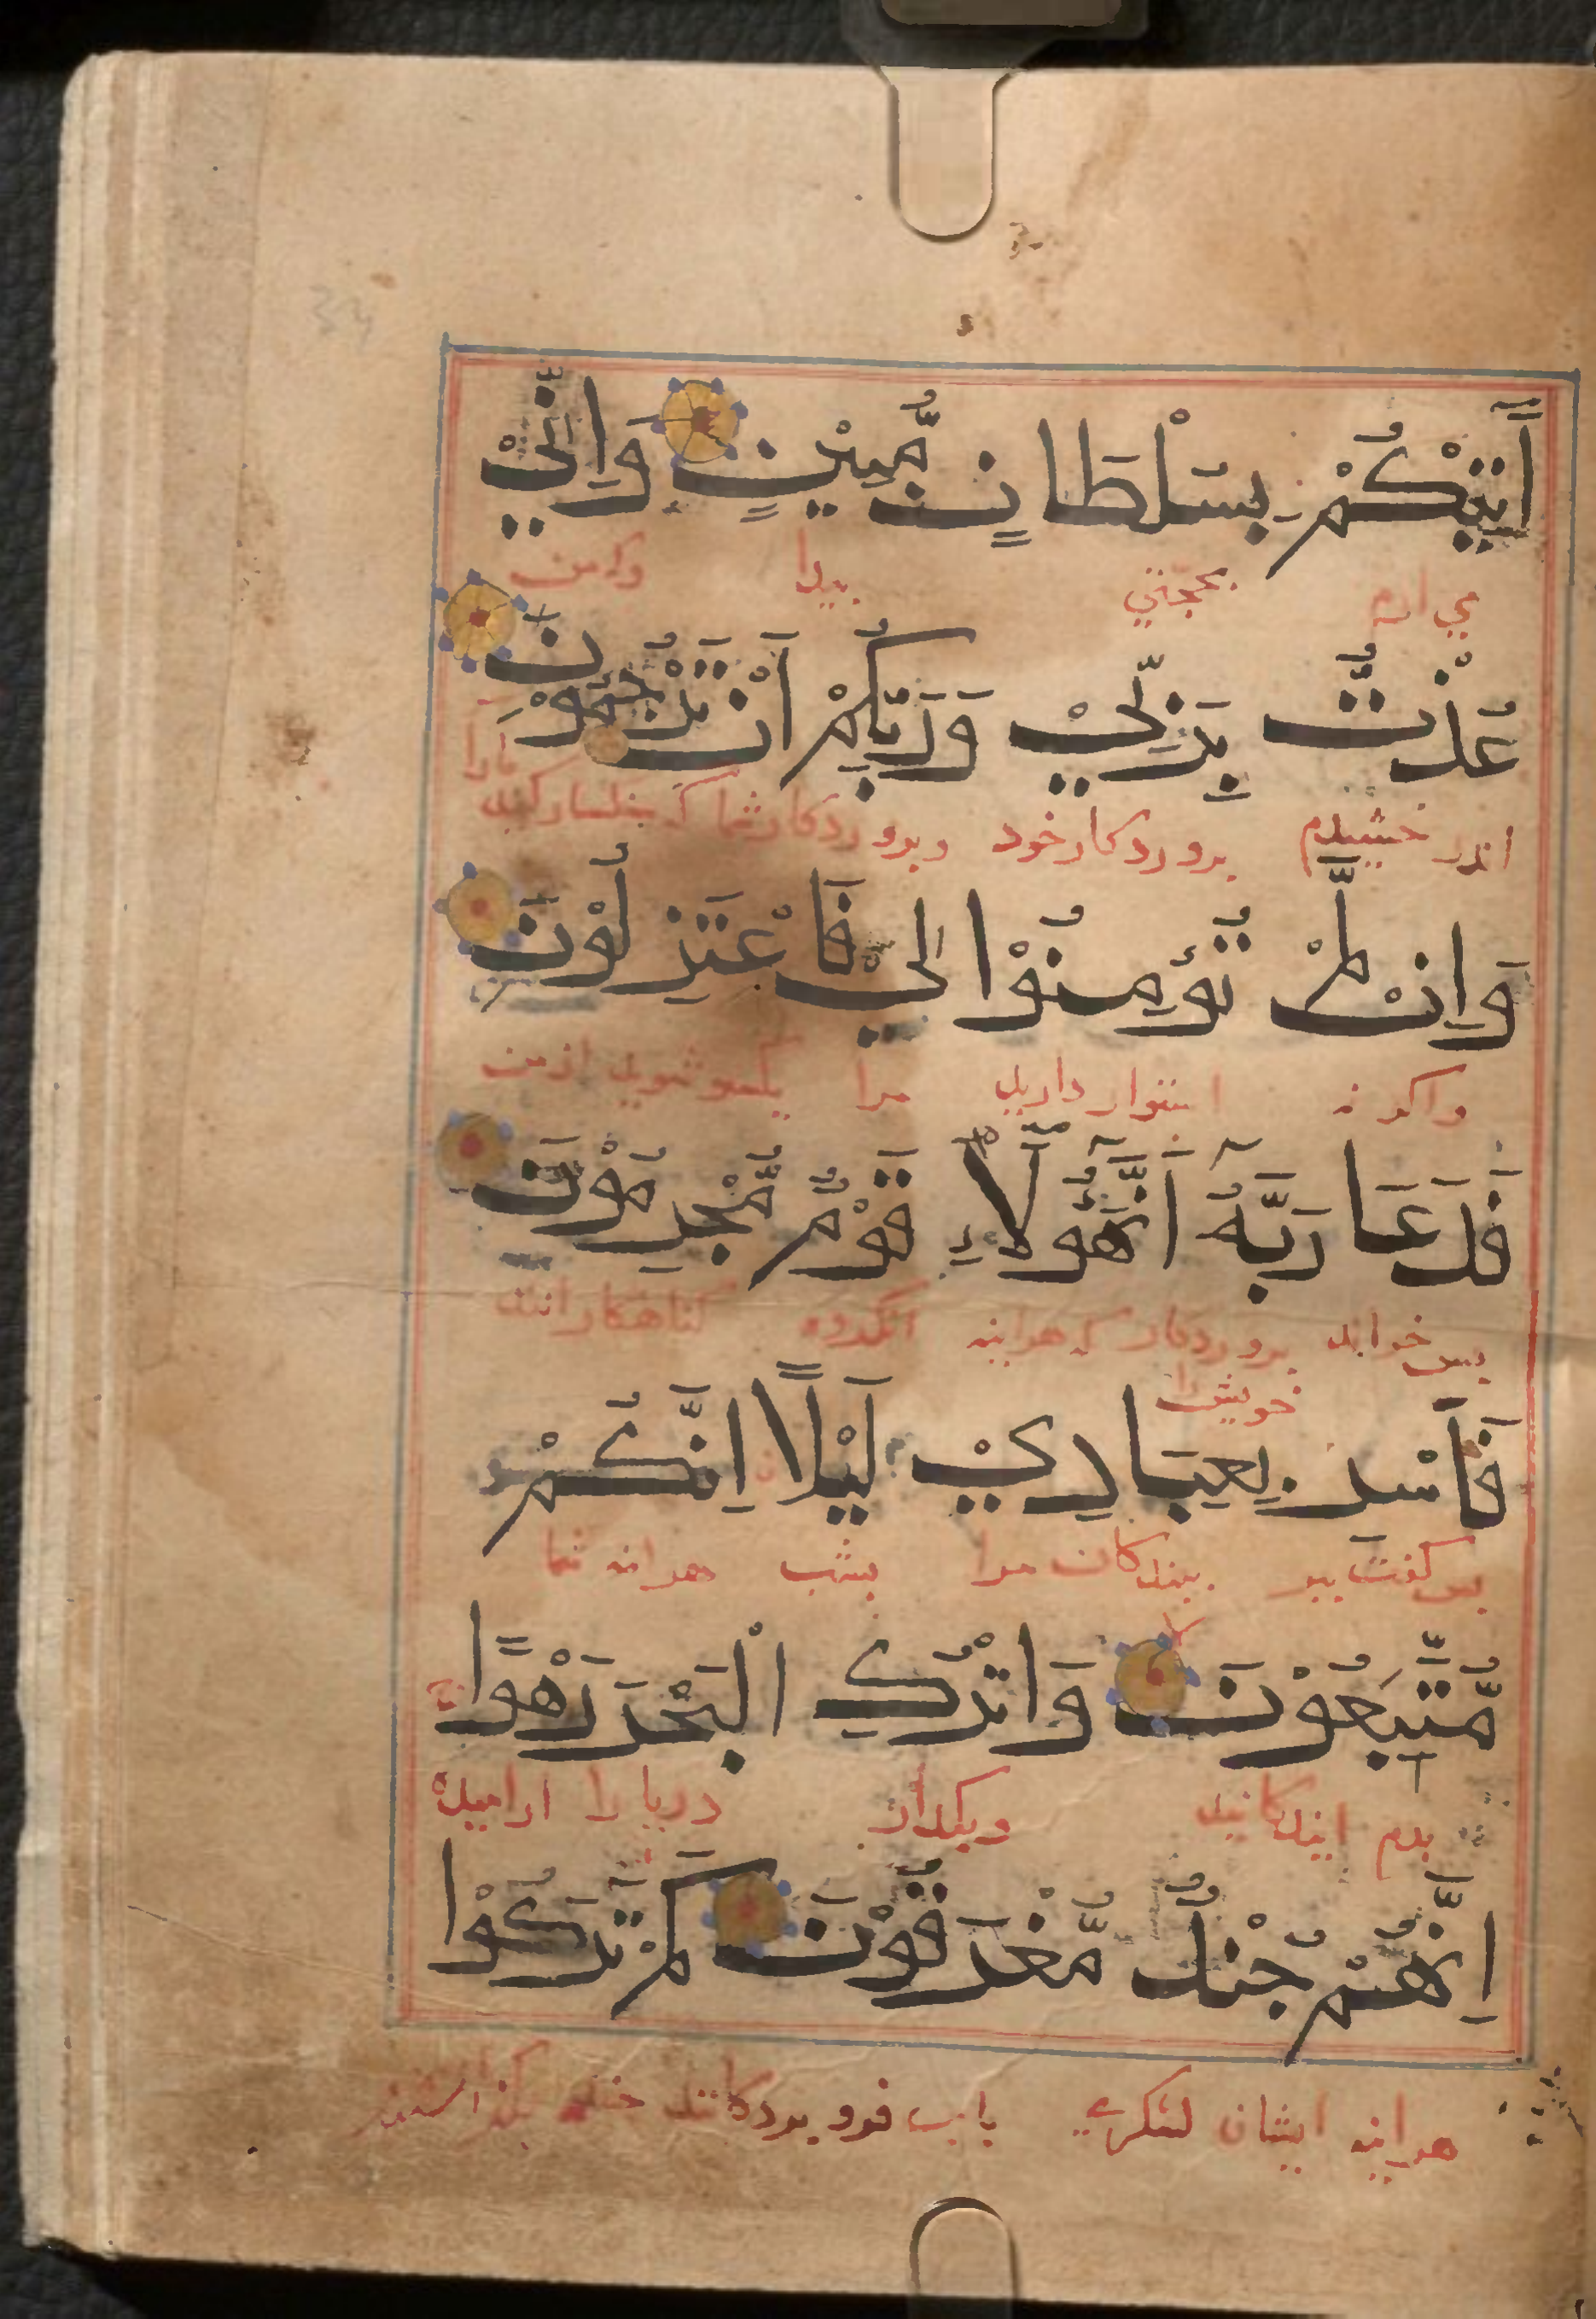 اٰتِيْكُمْ بِسُلْطَانٍ مُّبِيْنٍ وَاِنِّيْ
می ارم بحجتی پیدا وکه من
عُذْتُ بِرَبِّيْ وَرَبِّكُمْ اَنْ تَرْجُمُوْنِ
اندر خشیدم بپروردکار خود وپروردکار شما که سنکسار کنید مارا
وَاِنْ لَّمْ تُؤْمِنُوْا لِيْ فَاعْتَزِلُوْنِ
واکر نه استوار دارید مرا یکسو شوید از من
فَدَعَا رَبَّهُ اَنَّ هٰؤُلَاءِ قَوْمٌ مُّجْرِمُوْنَ
پس خواند پروردکار که هراینه انکروه کناهکارانند
خویش را
فَاَسْرِ بِعِبَادِيْ لَيْلًا اِنَّكُمْ
پس کفت ببر بندکان مرا بشب هراینه شما
مُّتَّبَعُوْنَ وَاتْرُكِ الْبَحْرَ رَهْوًا
بدم ایندکانید وبکدار دریا را ارامیده
اِنَّهُمْ جُنْدٌ مُّغْرَقُوْنَ كَمْ تَرَكُوْا
هراینه ایشان لشکری باب فرو بردکانند چند بکذاشتند